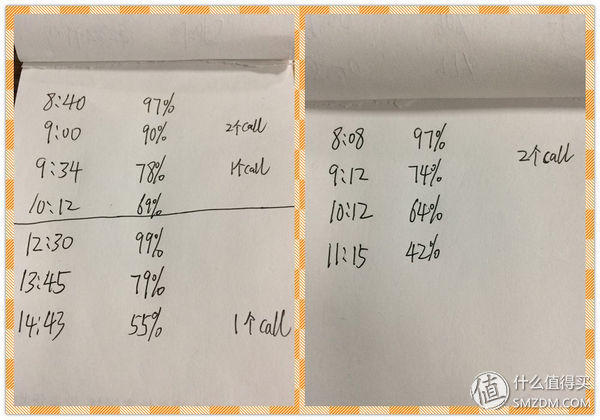 8:40 97%
9:00 90% 2个call
9:34 78% 1个call
10:12 69%
12:30 99%
13:45 79%
14:43 55% 1个call
8:08 97% 2个call
9:12 74%
10:12 64%
11:15 42%
值 什么值得买
SMZDM.COM